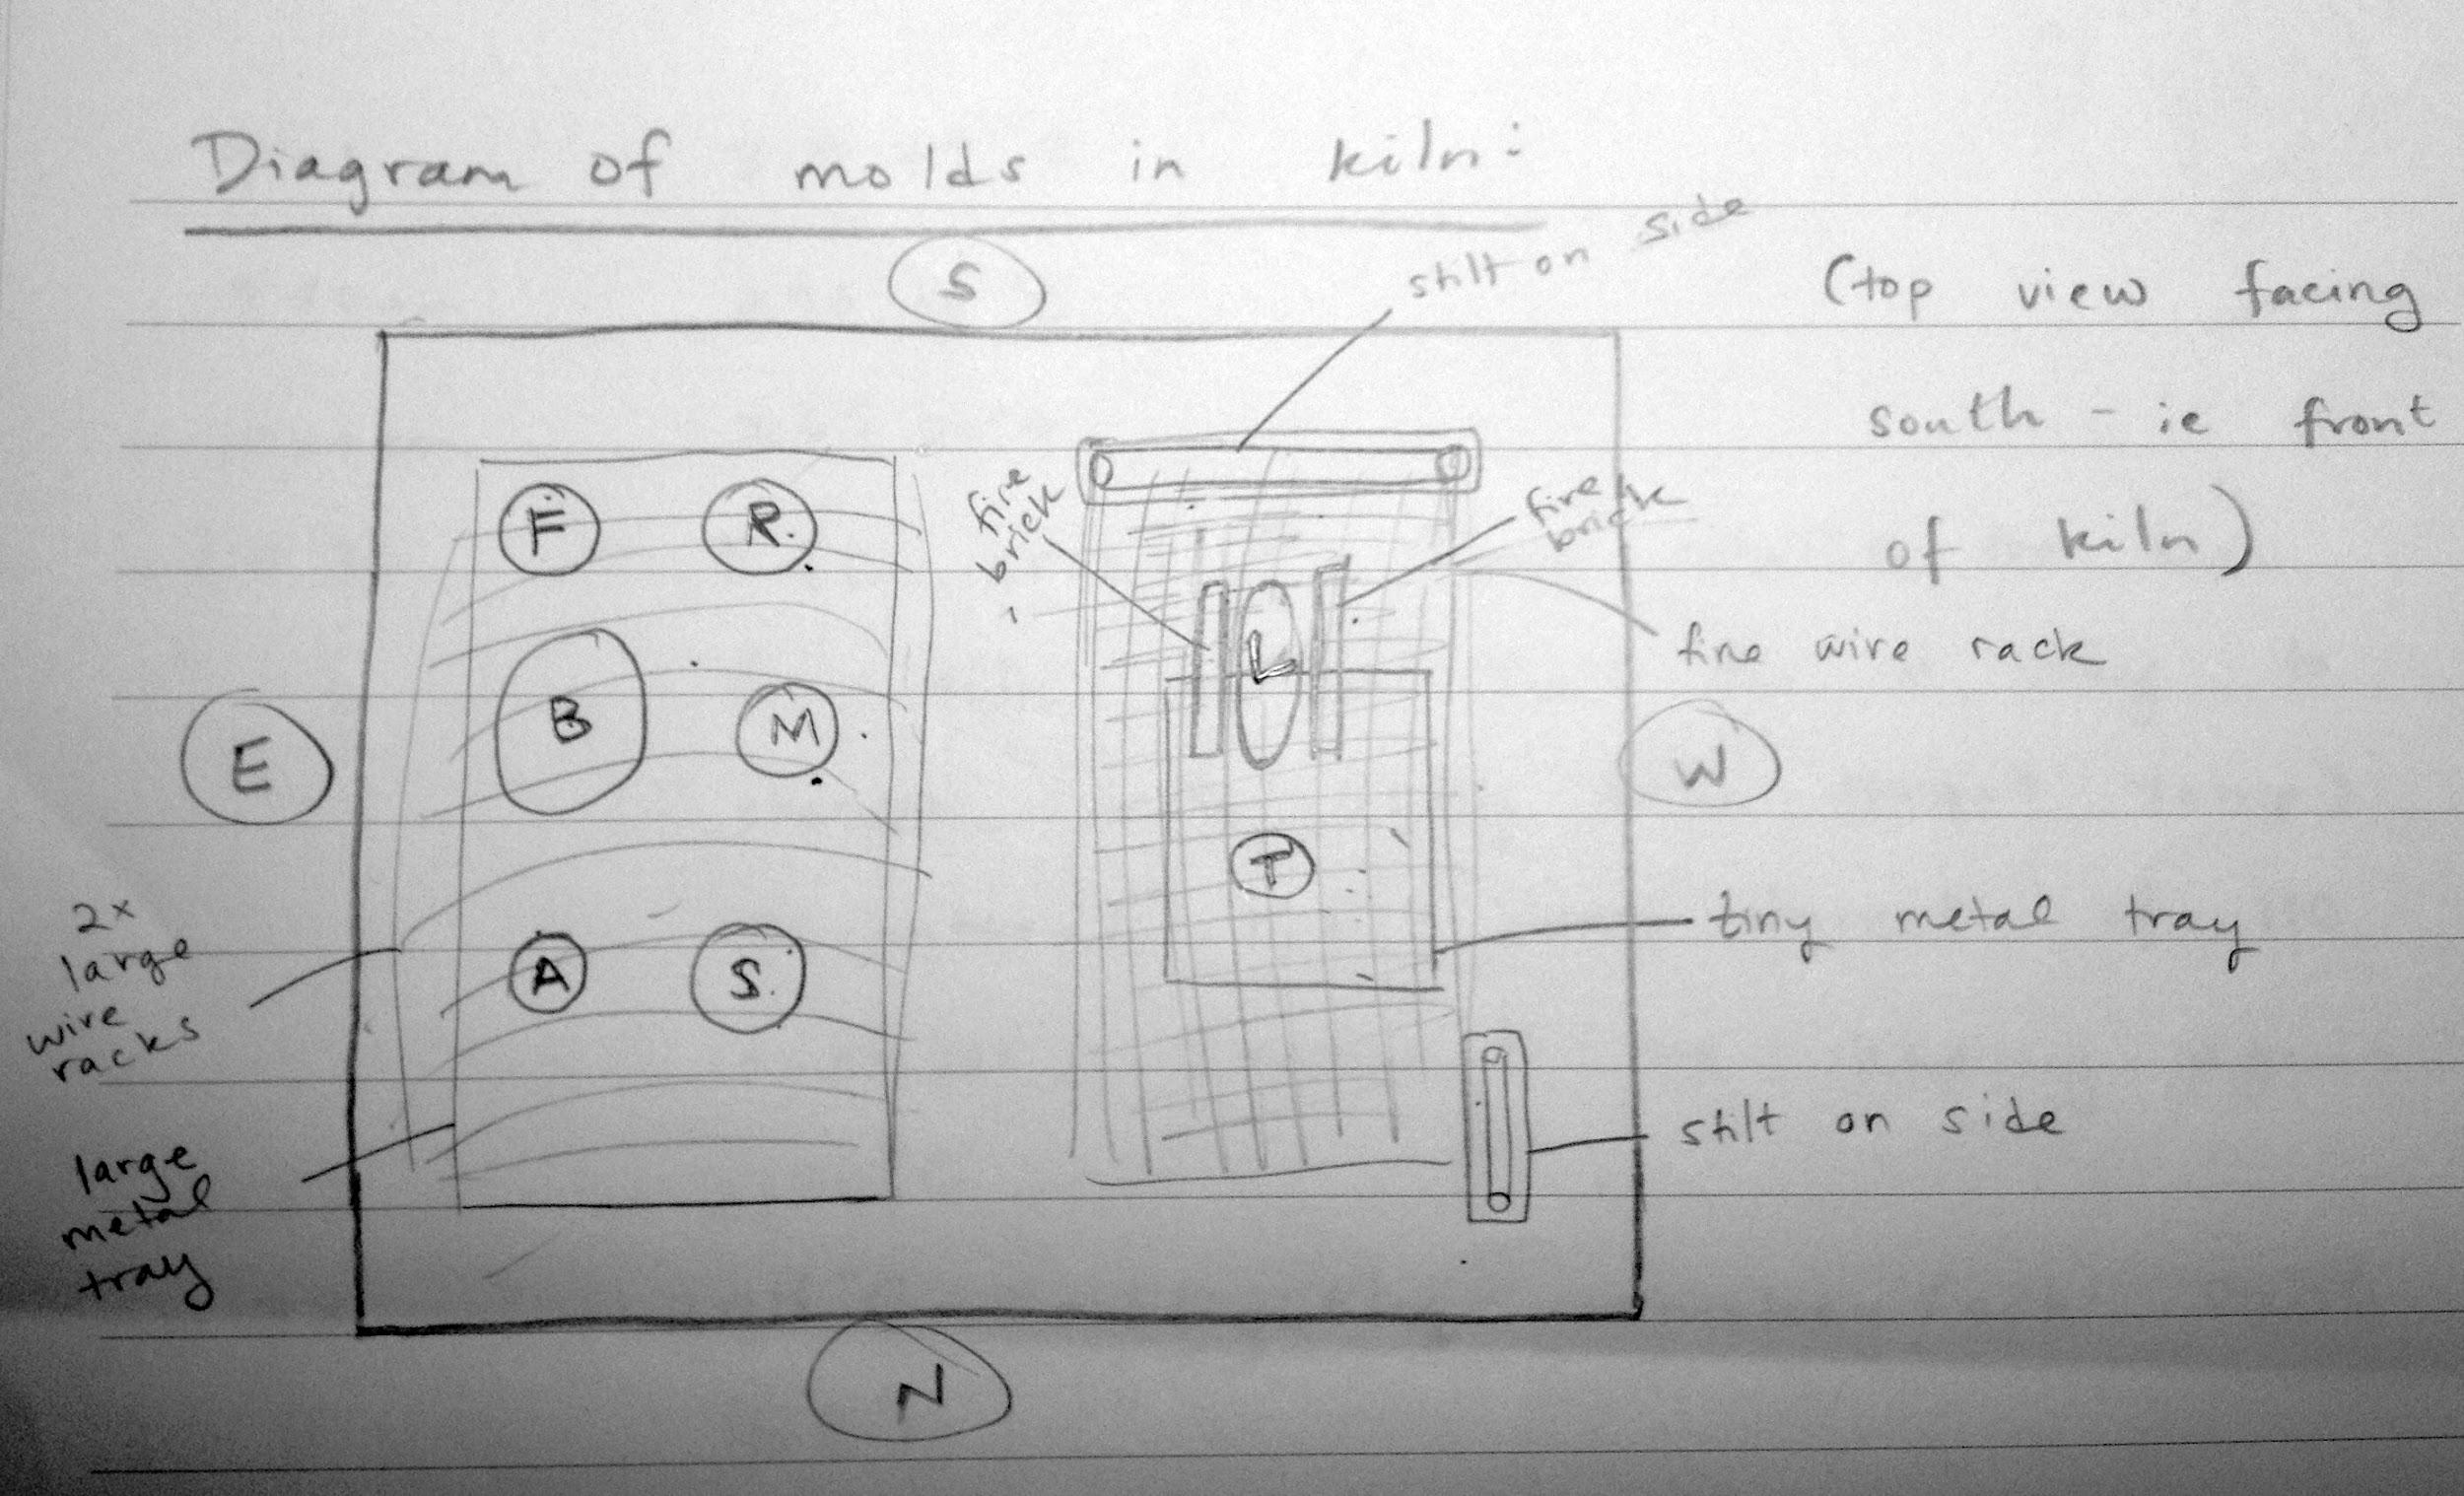 Diagram of molds in kiln:
S
stilt on side
(top view facing
south - ie front
of kiln)
F
R
fire
brick
fire
brick
fine wire rack
B
M
L
E
W
T
2x
large
wire
racks
tiny metal tray
A
S
stilt on side
large
metal
tray
N